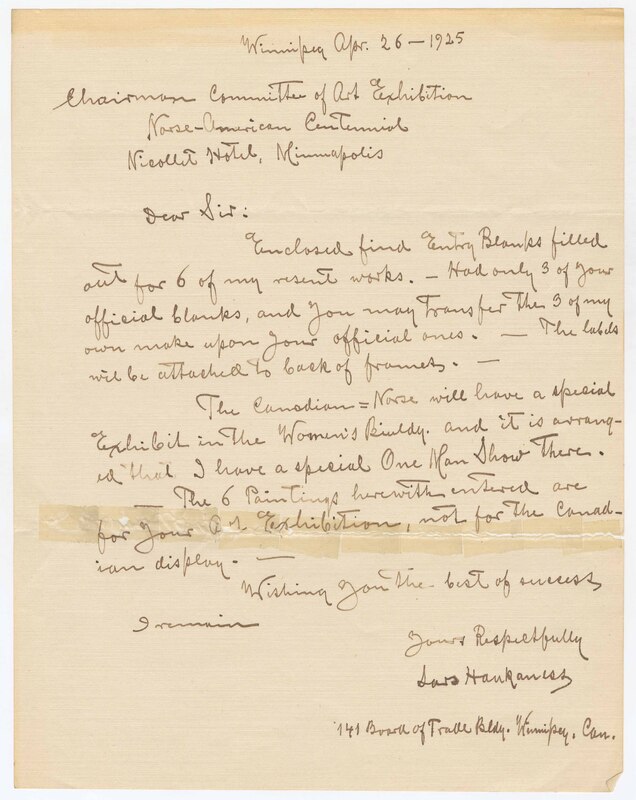 Winnipeg Apr. 26 — 1925
Chairman Committee of Art Exhibition
Norse-American Centennial
Nicollet Hotel, Minnapolis
Dear Sir:
Enclosed find Entry Blanks filled
out for 6 of my resent works. — Had only 3 of your
official blanks, and you may transfer the 3 of my
own make upon your official ones. — The labels
will be attached to back of frames. —
The Canadian=Norse will have a special
Exhibit in the Women's Buildg. and it is arrang-
ed that I have a special One Man Show There.
— The 6 Paintings herewith entered are
for your Art Exhibition, not for the Canad-
ian display. —
Wishing you the best of success
I remain
Yours Respectfully
Lars Haukaness
141 Board of Trade Bldg. Winnipeg. Can.